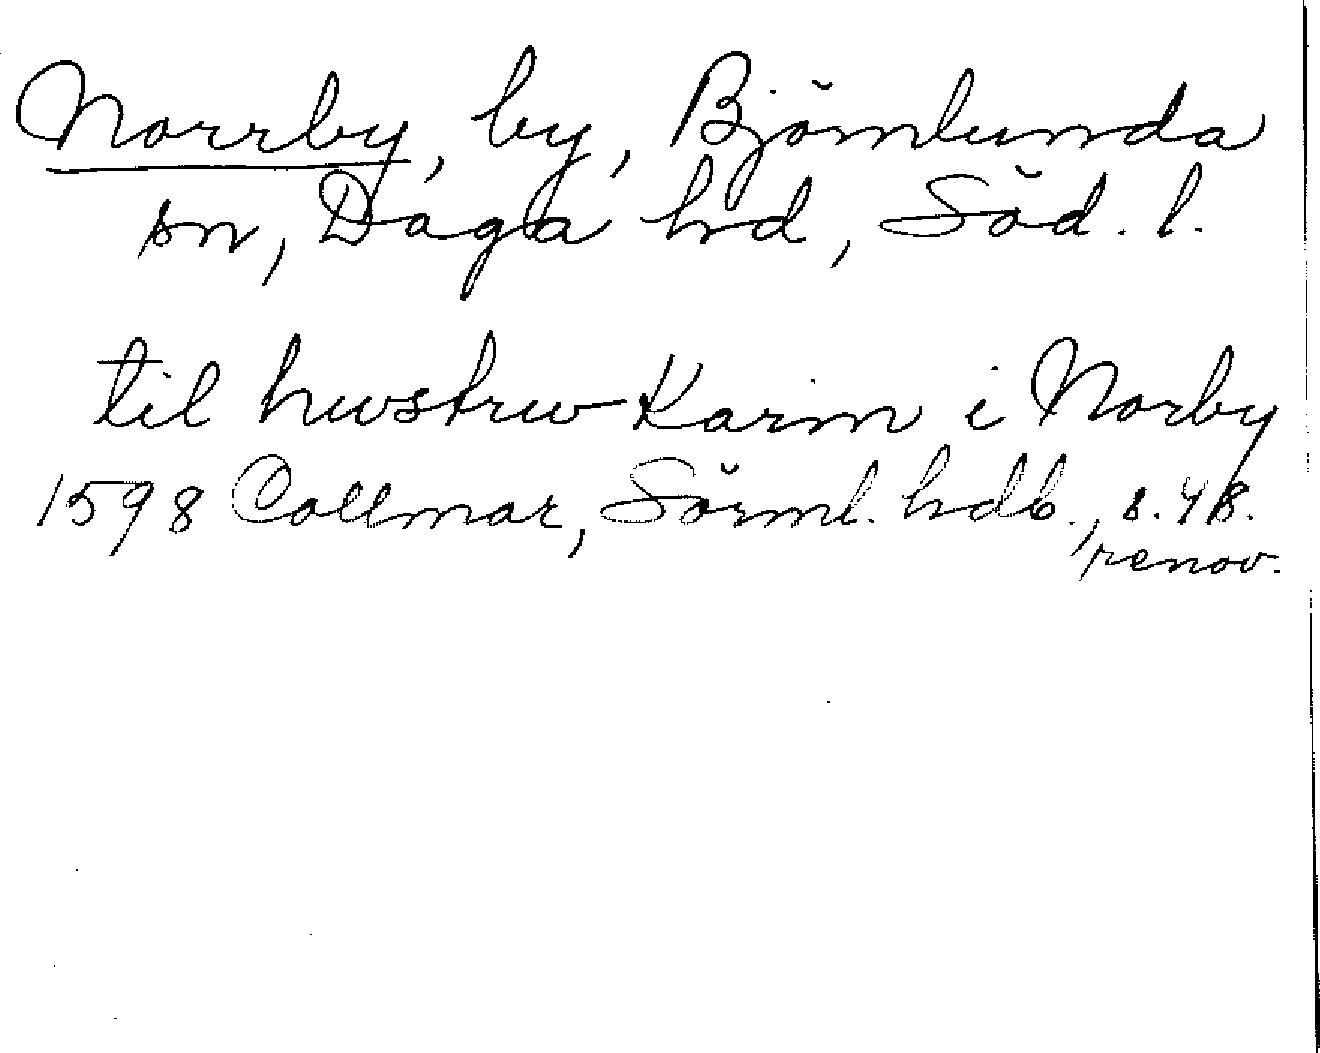 Norrby, by, Björnlunda
sn, Daga hd, Söd. l.
til hwstrw Karin i Norby
1598 Collmar, Sörml. hdb., s. 48.
renov.